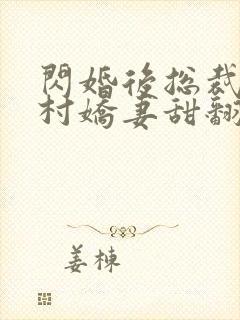 閃婚後總裁
村嬌妻甜翻
姜棟